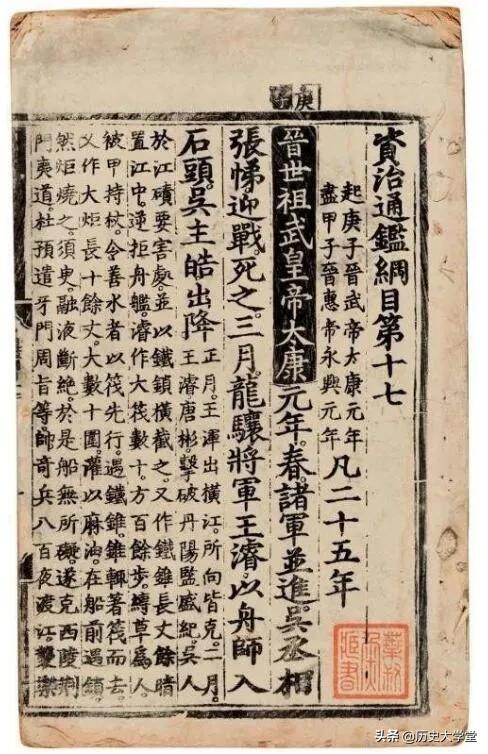 庚子
資治通鑑綱目第十七
起庚子晉武帝太康元年
盡甲子晉惠帝永興元年
凡二十五年
晉世祖武皇帝太康元年。春。諸軍並進。吳丞相
張悌迎戰。死之。三月。龍驤將軍王濬。以舟師入
石頭。吳主皓出降
正月。王渾出橫江。所向皆克。二月。
王濬唐彬擊破丹陽監盛紀。吳人
於江磧要害處。並以鐵鎖橫截之。又作鐵錐長丈餘暗
置江中。逆拒舟艦。濬作大筏數十。方百餘步。縛草爲人。
被甲持杖。令善水者以筏先行。遇鐵錐。錐輒著筏而去。
又作大炬。長十餘丈。大數十圍。灌以麻油。在船前。遇鎖。
然炬燒之。須臾。融液斷絕。於是船無所礙。遂克西陵荊
門夷道。杜預遣牙門周旨等。帥奇兵八百夜渡江。襲樂
头条 @历史大学堂